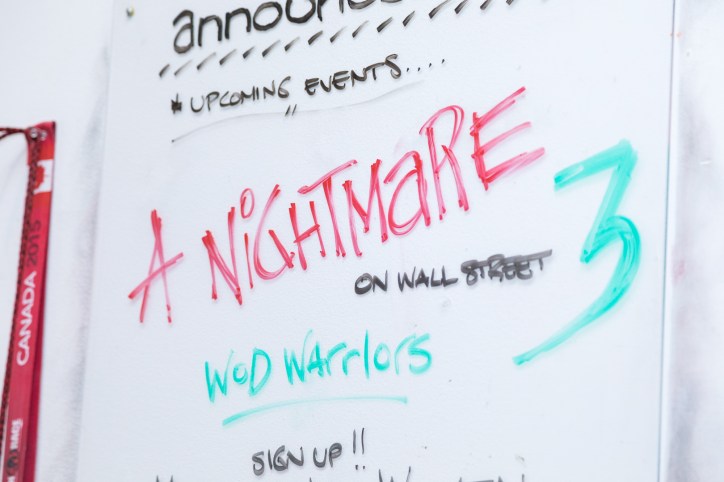 * UPCOMING EVENTS....
A NIGHTMARE 3
ON WALL STREET
WOD WARRIORS
SIGN UP!!
CANADA 2015
RACE